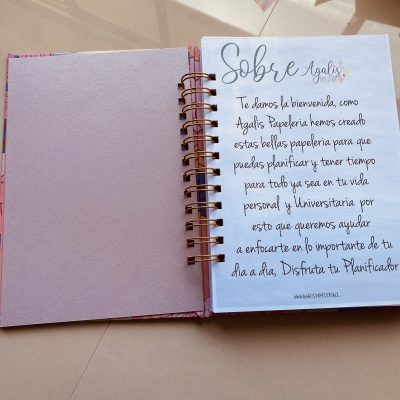 Sobre Agalis
Te damos la bienvenida, como
Agalis Papeleria hemos creado
estas bellas papeleria para que
puedas planificar y tener tiempo
para todo ya sea en tu vida
personal y Universitaria por
esto que queremos ayudar
a enfocarte en lo importante de tu
dia a dia, Disfruta tu Planificador